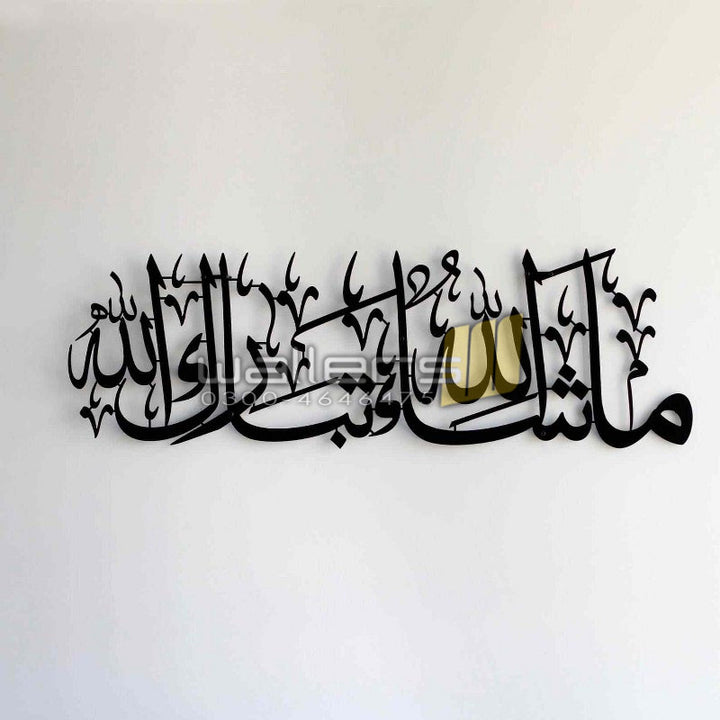 ما شاء الله تبارك الله
wallens
0300-4646475